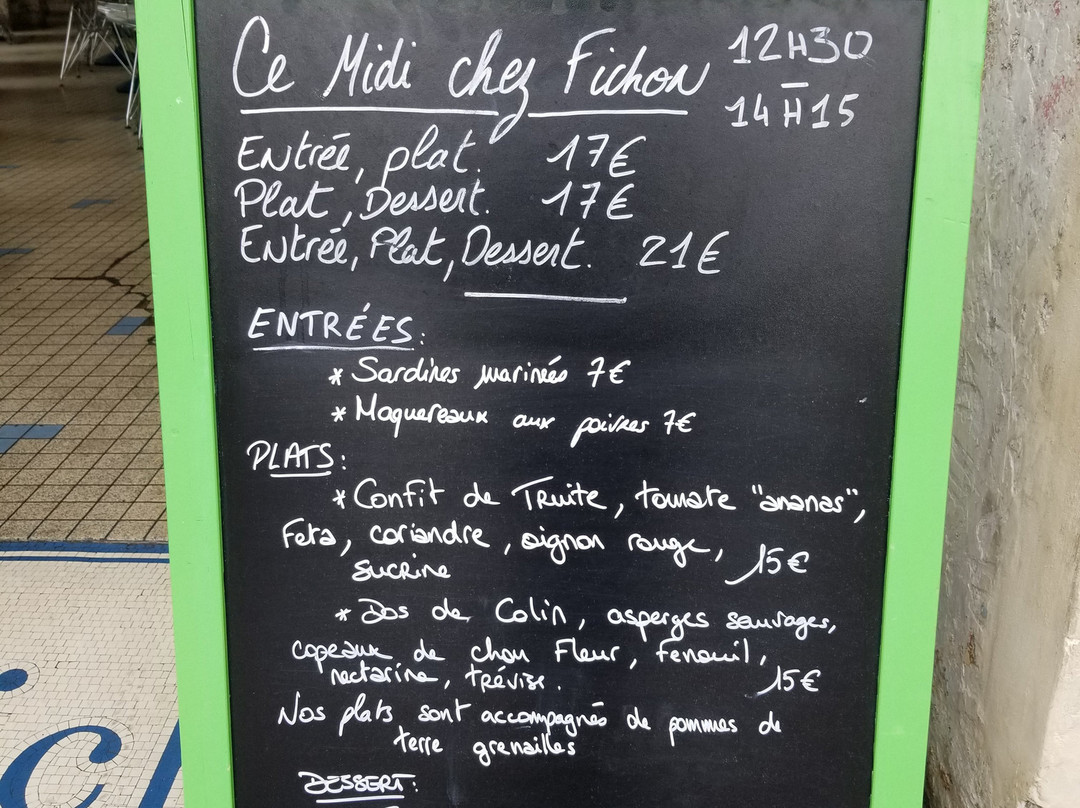 Ce Midi chez Fichon
12H30
–
14H15
Entrée, plat. 17€
Plat, Dessert. 17€
Entrée, Plat, Dessert. 21€
ENTRÉES:
* Sardines marinés 7€
* Maquereaux aux poivres 7€
PLATS:
* Confit de Truite, tomate "ananas",
Feta, coriandre, oignon rouge,
sucrine 15€
* Dos de Colin, asperges sauvages,
copeaux de chou Fleur, fenouil,
nectarine, trévise. 15€
Nos plats sont accompagnés de pommes de
terre grenailles
DESSERT: